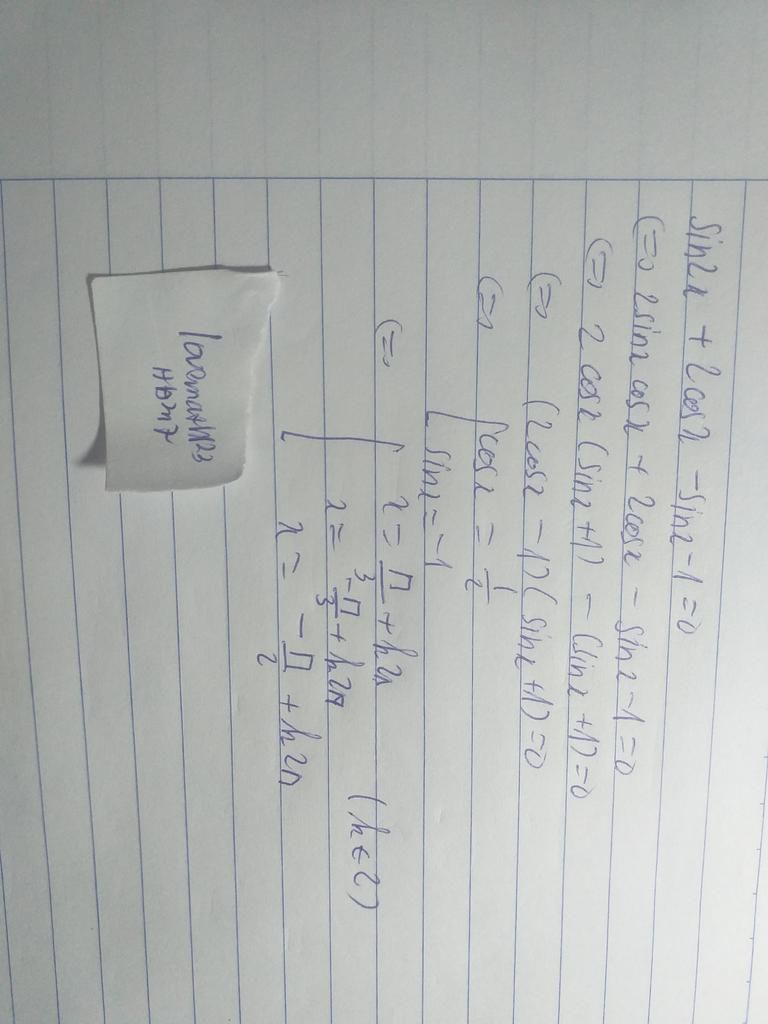 sin2x + 2cosx - sinx - 1 = 0
(=) 2sinx cosx + 2cosx - sinx - 1 = 0
(=) 2 cosx (sinx + 1) - (sinx + 1) = 0
(=) (2cosx - 1) (sinx + 1) = 0
(=) [ cosx = 1/2
sinx = -1
(=) [ x = π/3 + k2π
x = -π/3 + k2π (k ∈ Z)
x = -π/2 + k2π